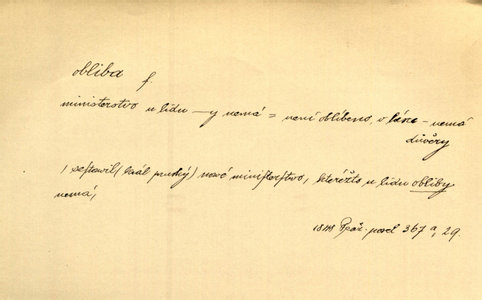 obliba f.
ministerstvo u lidu —y nemá = není oblíbeno, v lásce – nemá
důvěry
/ sestavil (král pruský) nové ministerstvo, kteréžto u lidu obliby
nemá,
1848 367 a, 29.